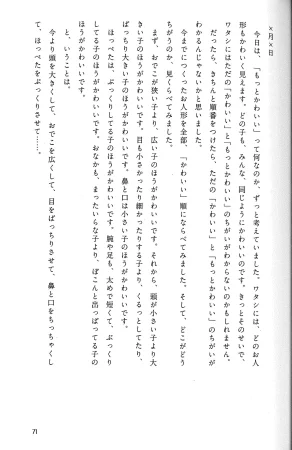 ×月×日
今日は、「もっとかわいい」って何なのか、ずっと考えていました。ワタシには、どのお人
形もかわいく見えます。どの子も、みんな、同じようにかわいいのです。きっとそのせいで、
ワタシにはただの「かわいい」と「もっとかわいい」のちがいがわからないのかもしれません。
だったら、きちんと順番をつけたら、ただの「かわいい」と「もっとかわいい」のちがいが
わかるんじゃないかと思いました。
今までにつくったお人形を全部、「かわいい」順にならべてみました。そして、どこがどう
ちがうのか、見くらべてみました。
まず、おでこが狭い子より、広い子のほうがかわいいです。それから、頭が小さい子より大
きい子のほうがかわいいです。目も小さかったり細かったりする子より、くるっとしてたり、
ぱっちり大きい子のほうがかわいいです。鼻と口は小さい子のほうがかわいいです。
ほっぺたは、ぷっくりしてる子のほうがかわいいです。腕や足も、太めで短くて、ぷっくり
してる子のほうがかわいいです。おなかも、まったいらな子より、ぽこんと出っぱってる子の
ほうがかわいいです。
と、いうことは。
今より頭を大きくして、おでこを広くして、目をぱっちりさせて、鼻と口をちっちゃくし
て、ほっぺたをぷっくりさせて……。
71